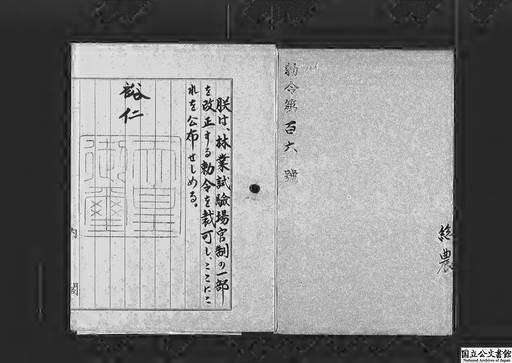 勅令第百六號
総農
朕は、林業試驗場官制の一部
を改正する勅令を裁可し、ここにこ
れを公布せしめる。
裕仁
天皇
御璽
内閣
国立公文書館
National Archives of Japan